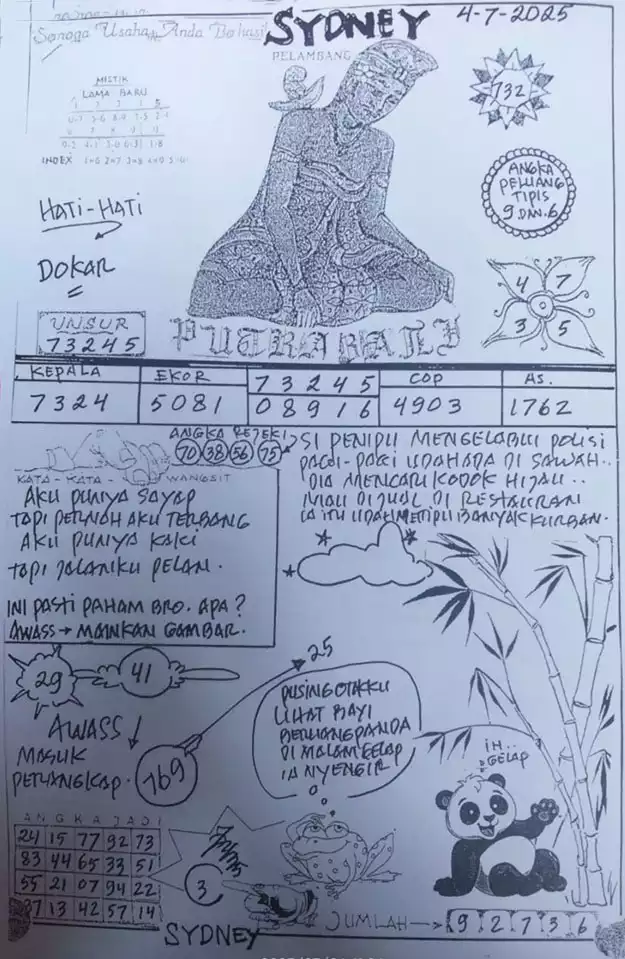 Semoga Usaha Anda Berhasil
SYDNEY
4-7-2025
PELAMBANG
MISTIK
LAMA BARU
INDEX 1=6 2=7 3=8 4=9 5=0
732
ANGKA
PELUANG
TIPIS
9 DAN 6
HATI-HATI
DOKAR
4 7
3 5
UNSUR
73245
PUTRA BALI
KEPALA EKOR 73245 COP AS.
7324 5081 08916 4903 1762
ANGKA REJEKI
70 38 56 75
SI PENIPU MENGELABUI POLISI
PAGI-PAGI UDAH ADA DI SAWAH..
DIA MENCARI KODOK HIJAU..
MAU DIJUAL DI RESTAURAN
IA ITU UDAH METIPU BANYAK KURBAN.
KATA-KATA WANGSIT
AKU PUNYA SAYAP
TAPI PERNAH AKU TERBANG
AKU PUNYA KAKI
TAPI JALANKU PELAN.
INI PASTI PAHAM BRO. APA?
AWASS → MAINKAN GAMBAR.
29
41
25
AWASS
MASUK
PERANGKAP.
169
PUSING OTAKKU
LIHAT BAYI
BERUANG PANDA
DI MALAM GELAP
IA NYENGIR
IH..
GELAP
ANGKA JADI
24 15 77 92 73
83 44 65 33 51
55 21 07 94 22
37 13 42 57 14
3
SYDNEY
JUMLAH → 9 2 7 3 6